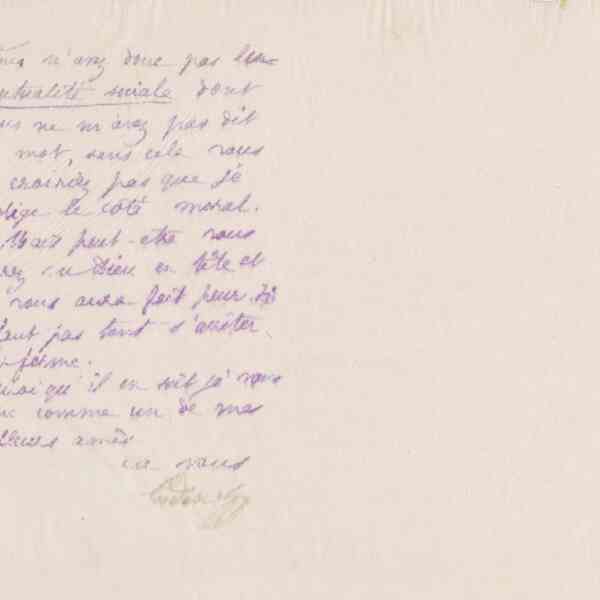 n'avez donc pas
mutualité sociale dont
ne m'avez pas dit
mot, sans cela vous
croiriez pas que je
néglige le côté moral.
Mais peut-être vous
Dieu en tête et
vous aura fait peur. Il
faut pas tant s'arrêter
forme.
Quoiqu'il en soit je vous
comme un de mes
amis
à vous